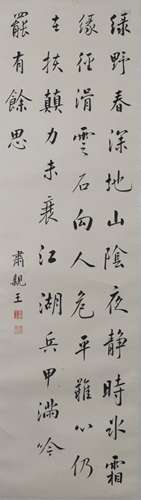 綠野春深地山陰夜靜時冰霜
緣徑滑雲石向人危平難心仍
在扶顛力未衰江湖兵甲滿吟
罷有餘思
肅親王